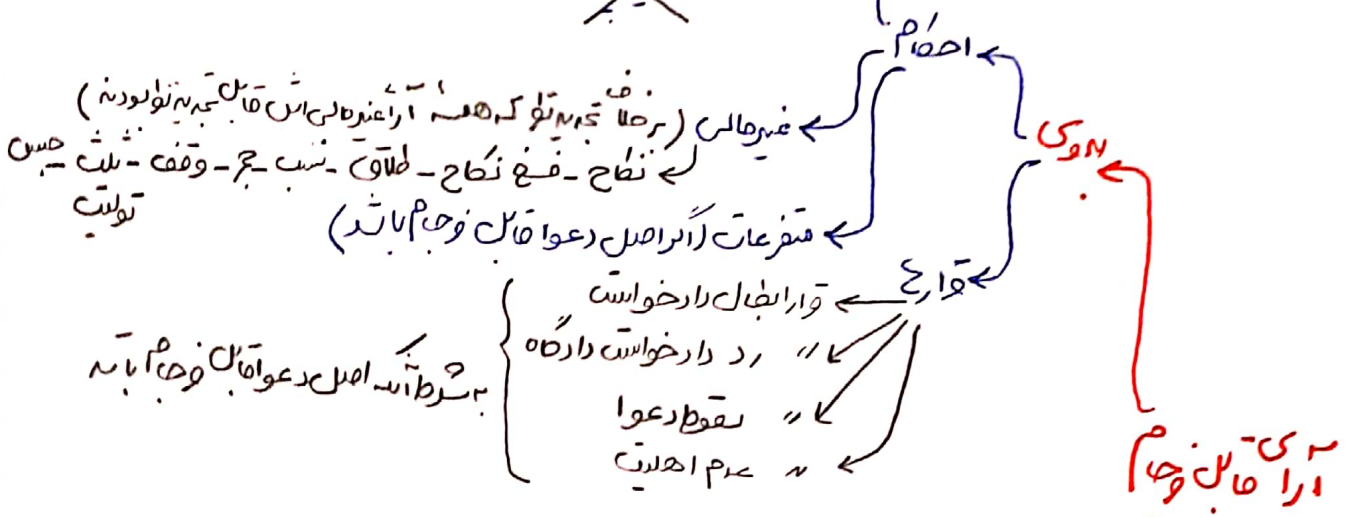 آرای قابل فرجام
بدوی
احکام
غیرمالی (برخلاف تجدیدنظر که همه آراء غیرمالی اش قابل تجدیدنظر بودند)
نکاح - فسخ نکاح - طلاق - نسب - حجر - وقف - ثلث - حبس
تولیت
متفرعات (اگر اصل دعوا قابل فرجام باشد)
قرارها
قرار ابطال دادخواست
〃 رد دادخواست دادگاه
〃 سقوط دعوا
〃 عدم اهلیت
به شرط آنکه اصل دعوا قابل فرجام باشد